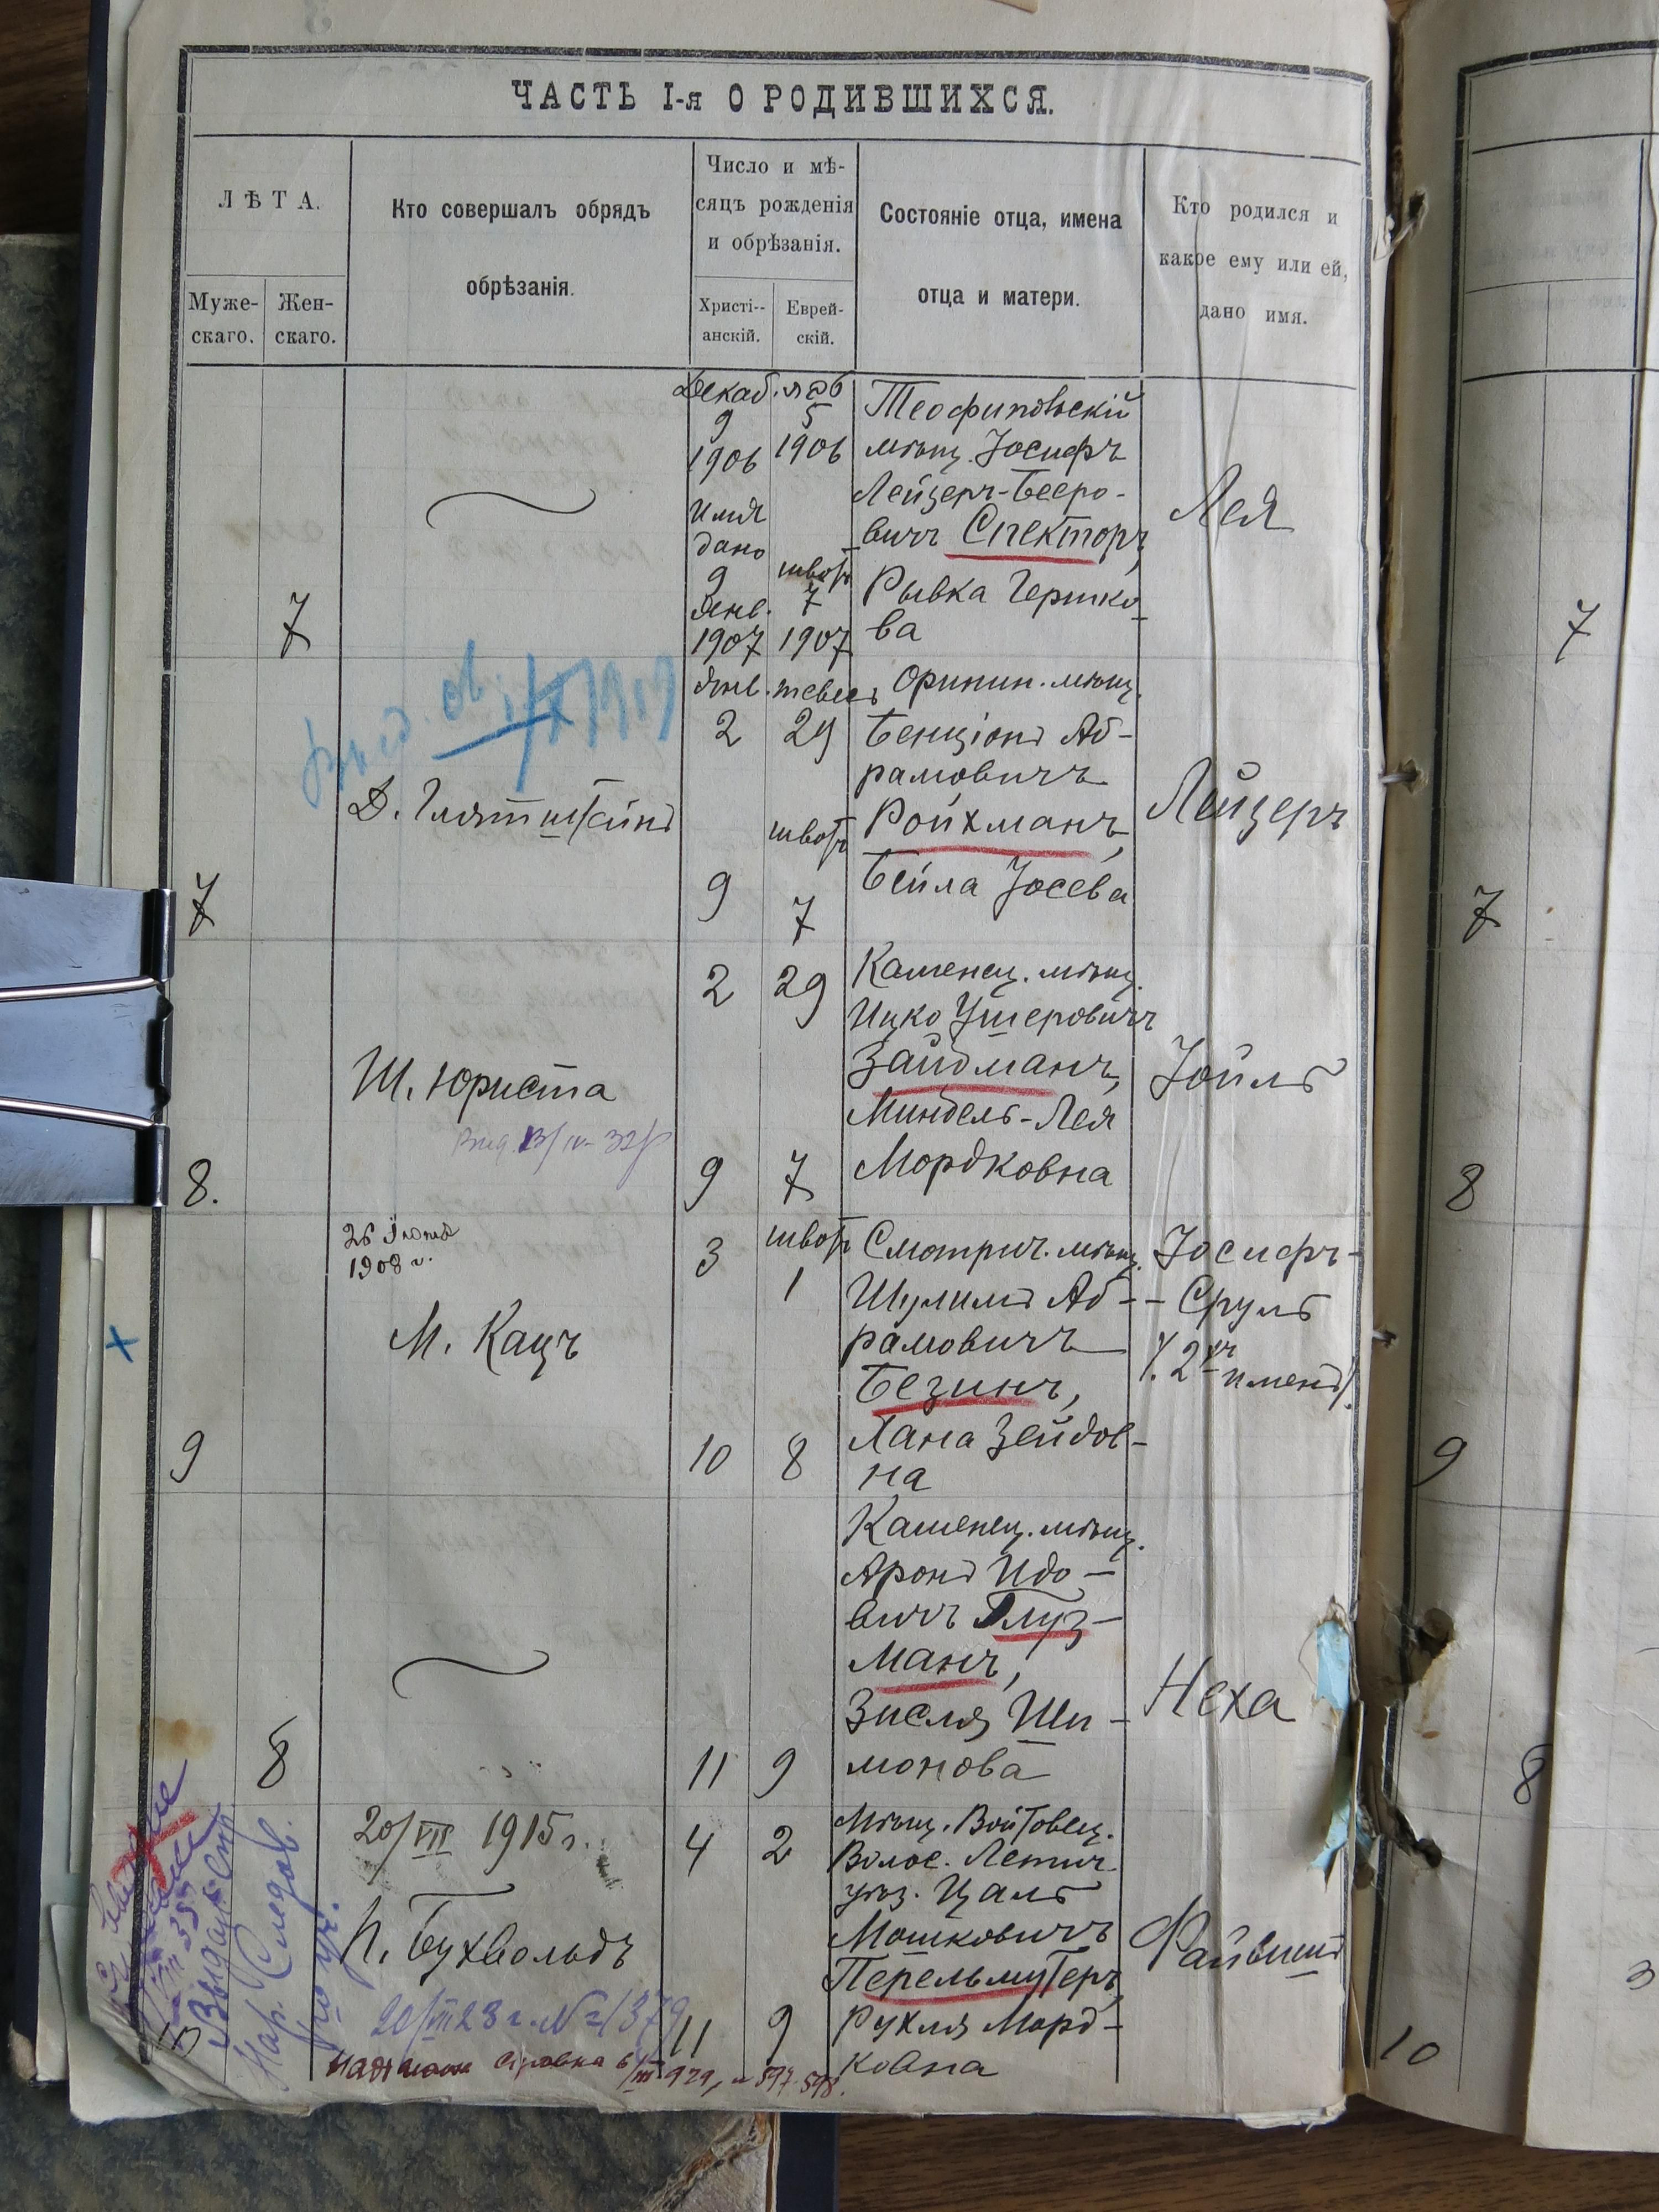 ЧАСТЬ I-я О РОДИВШИХСЯ.
ЛѢТА.
Муже-
скаго.
Жен-
скаго.
Кто совершалъ обрядъ
обрѣзанія.
Число и мѣ-
сяцъ рожденія
и обрѣзанія.
Христі--
анскій.
Еврей-
скій.
Состояніе отца, имена
отца и матери.
Кто родился и
какое ему или ей,
дано имя.
7
Декаб.
9
1906
имя
дано
9
Янв.
1907
5
1906
швотъ
7
1907
Теофипольскій
мѣщ. Іосифъ
Лейзеръ-Беро-
вичъ Спекторъ,
Рывка Гершко-
ва
Лея
7
7
Д. Глятштейнъ
Янв.
2
9
тевесъ
29
швотъ
7
Оринин. мѣщ.
Бенціонъ Аб-
рамовичъ
Ройхманъ,
Бейла Іосева
Лейзеръ
7
8.
Ш. Юриста
2
9
29
7
Каменец. мѣщ.
Ицко Ушеровичъ
Зайдманъ,
Миндель-Лея
Мордковна
Іойль
8
9
1908 г.
М. Кацъ
3
10
швотъ
1
8
Смотрич. мѣщ.
Шулимъ Аб-
рамовичъ
Безинъ,
Хана Зейдов-
на
Іосифъ-
- Сруль
9
8
11
9
Каменец. мѣщ.
Аронъ Идо-
вичъ Глуз-
манъ,
Зисля Ши-
монова
Неха
8
10
20/VII 1915 г.
П. Бухвольдъ
20/III 28 г. № 1379
4
11
2
9
Мѣщ. Войтовец.
Волос. Летич.
уѣз. Цаль
Мошковичъ
Перельмутеръ,
Рухля Морд-
ковна
Файвишъ
10